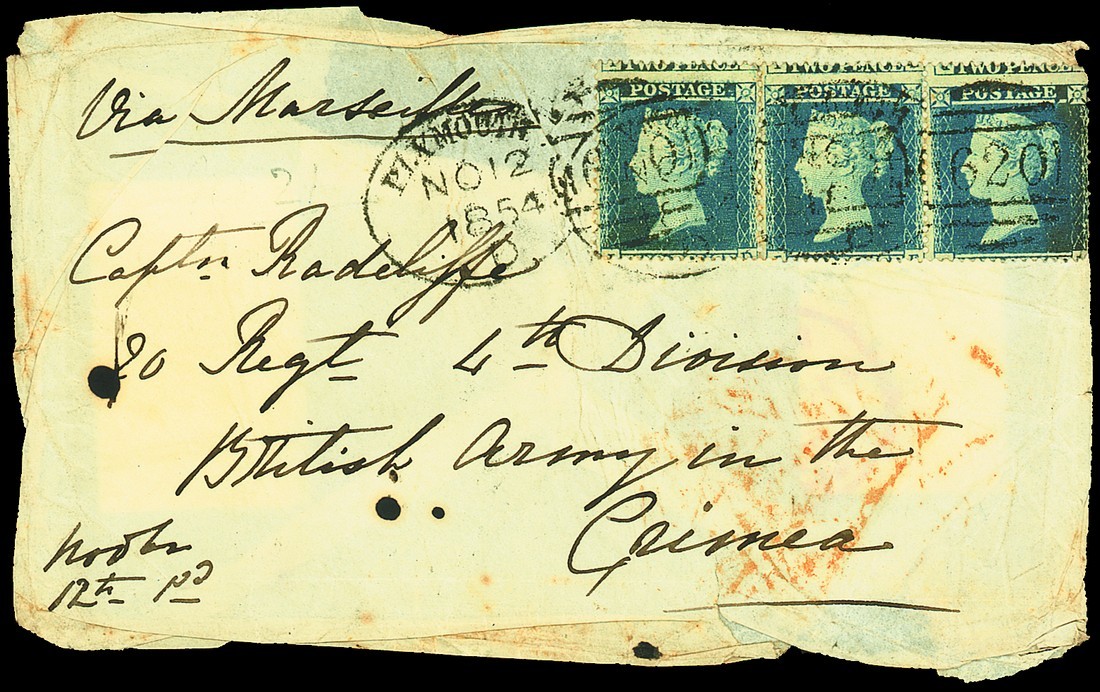 TWO PENCE TWO PENCE TWO PENCE
POSTAGE POSTAGE POSTAGE
Via Marseille
PLYMOUTH
NO 12
1854
620
Captn Radcliffe
20 Regt 4th Division
British Army in the
Crimea
Novbr
12th pd